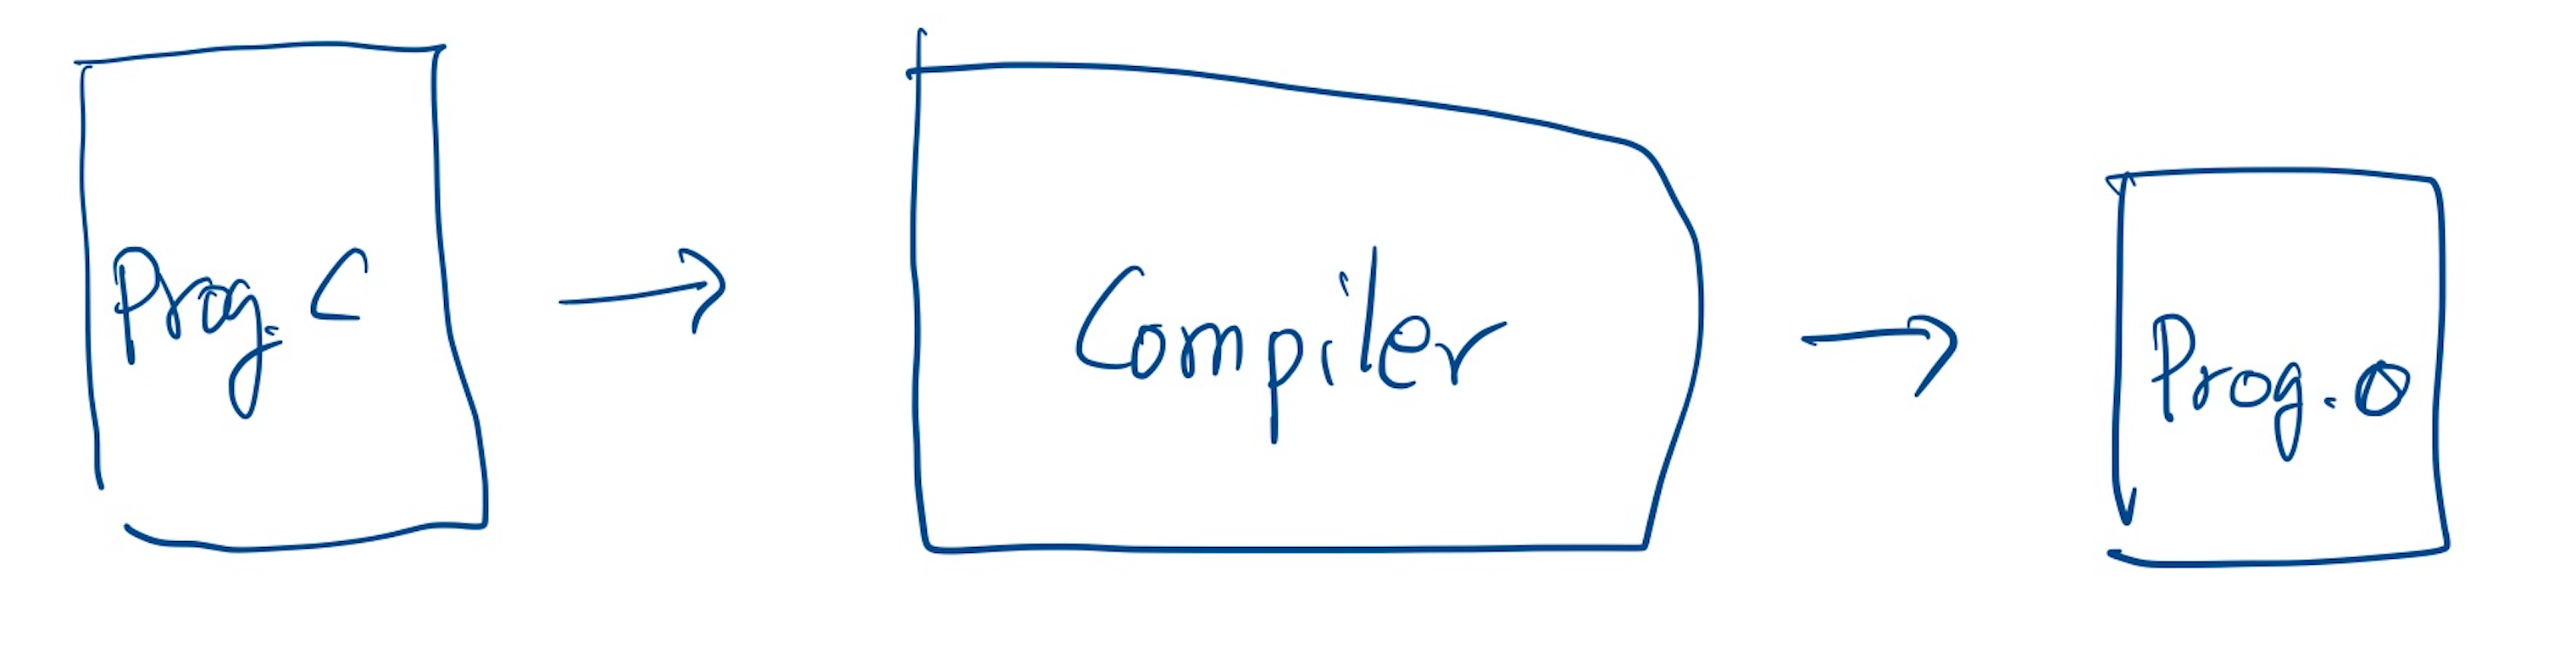 Prog. C
Compiler
Prog. o